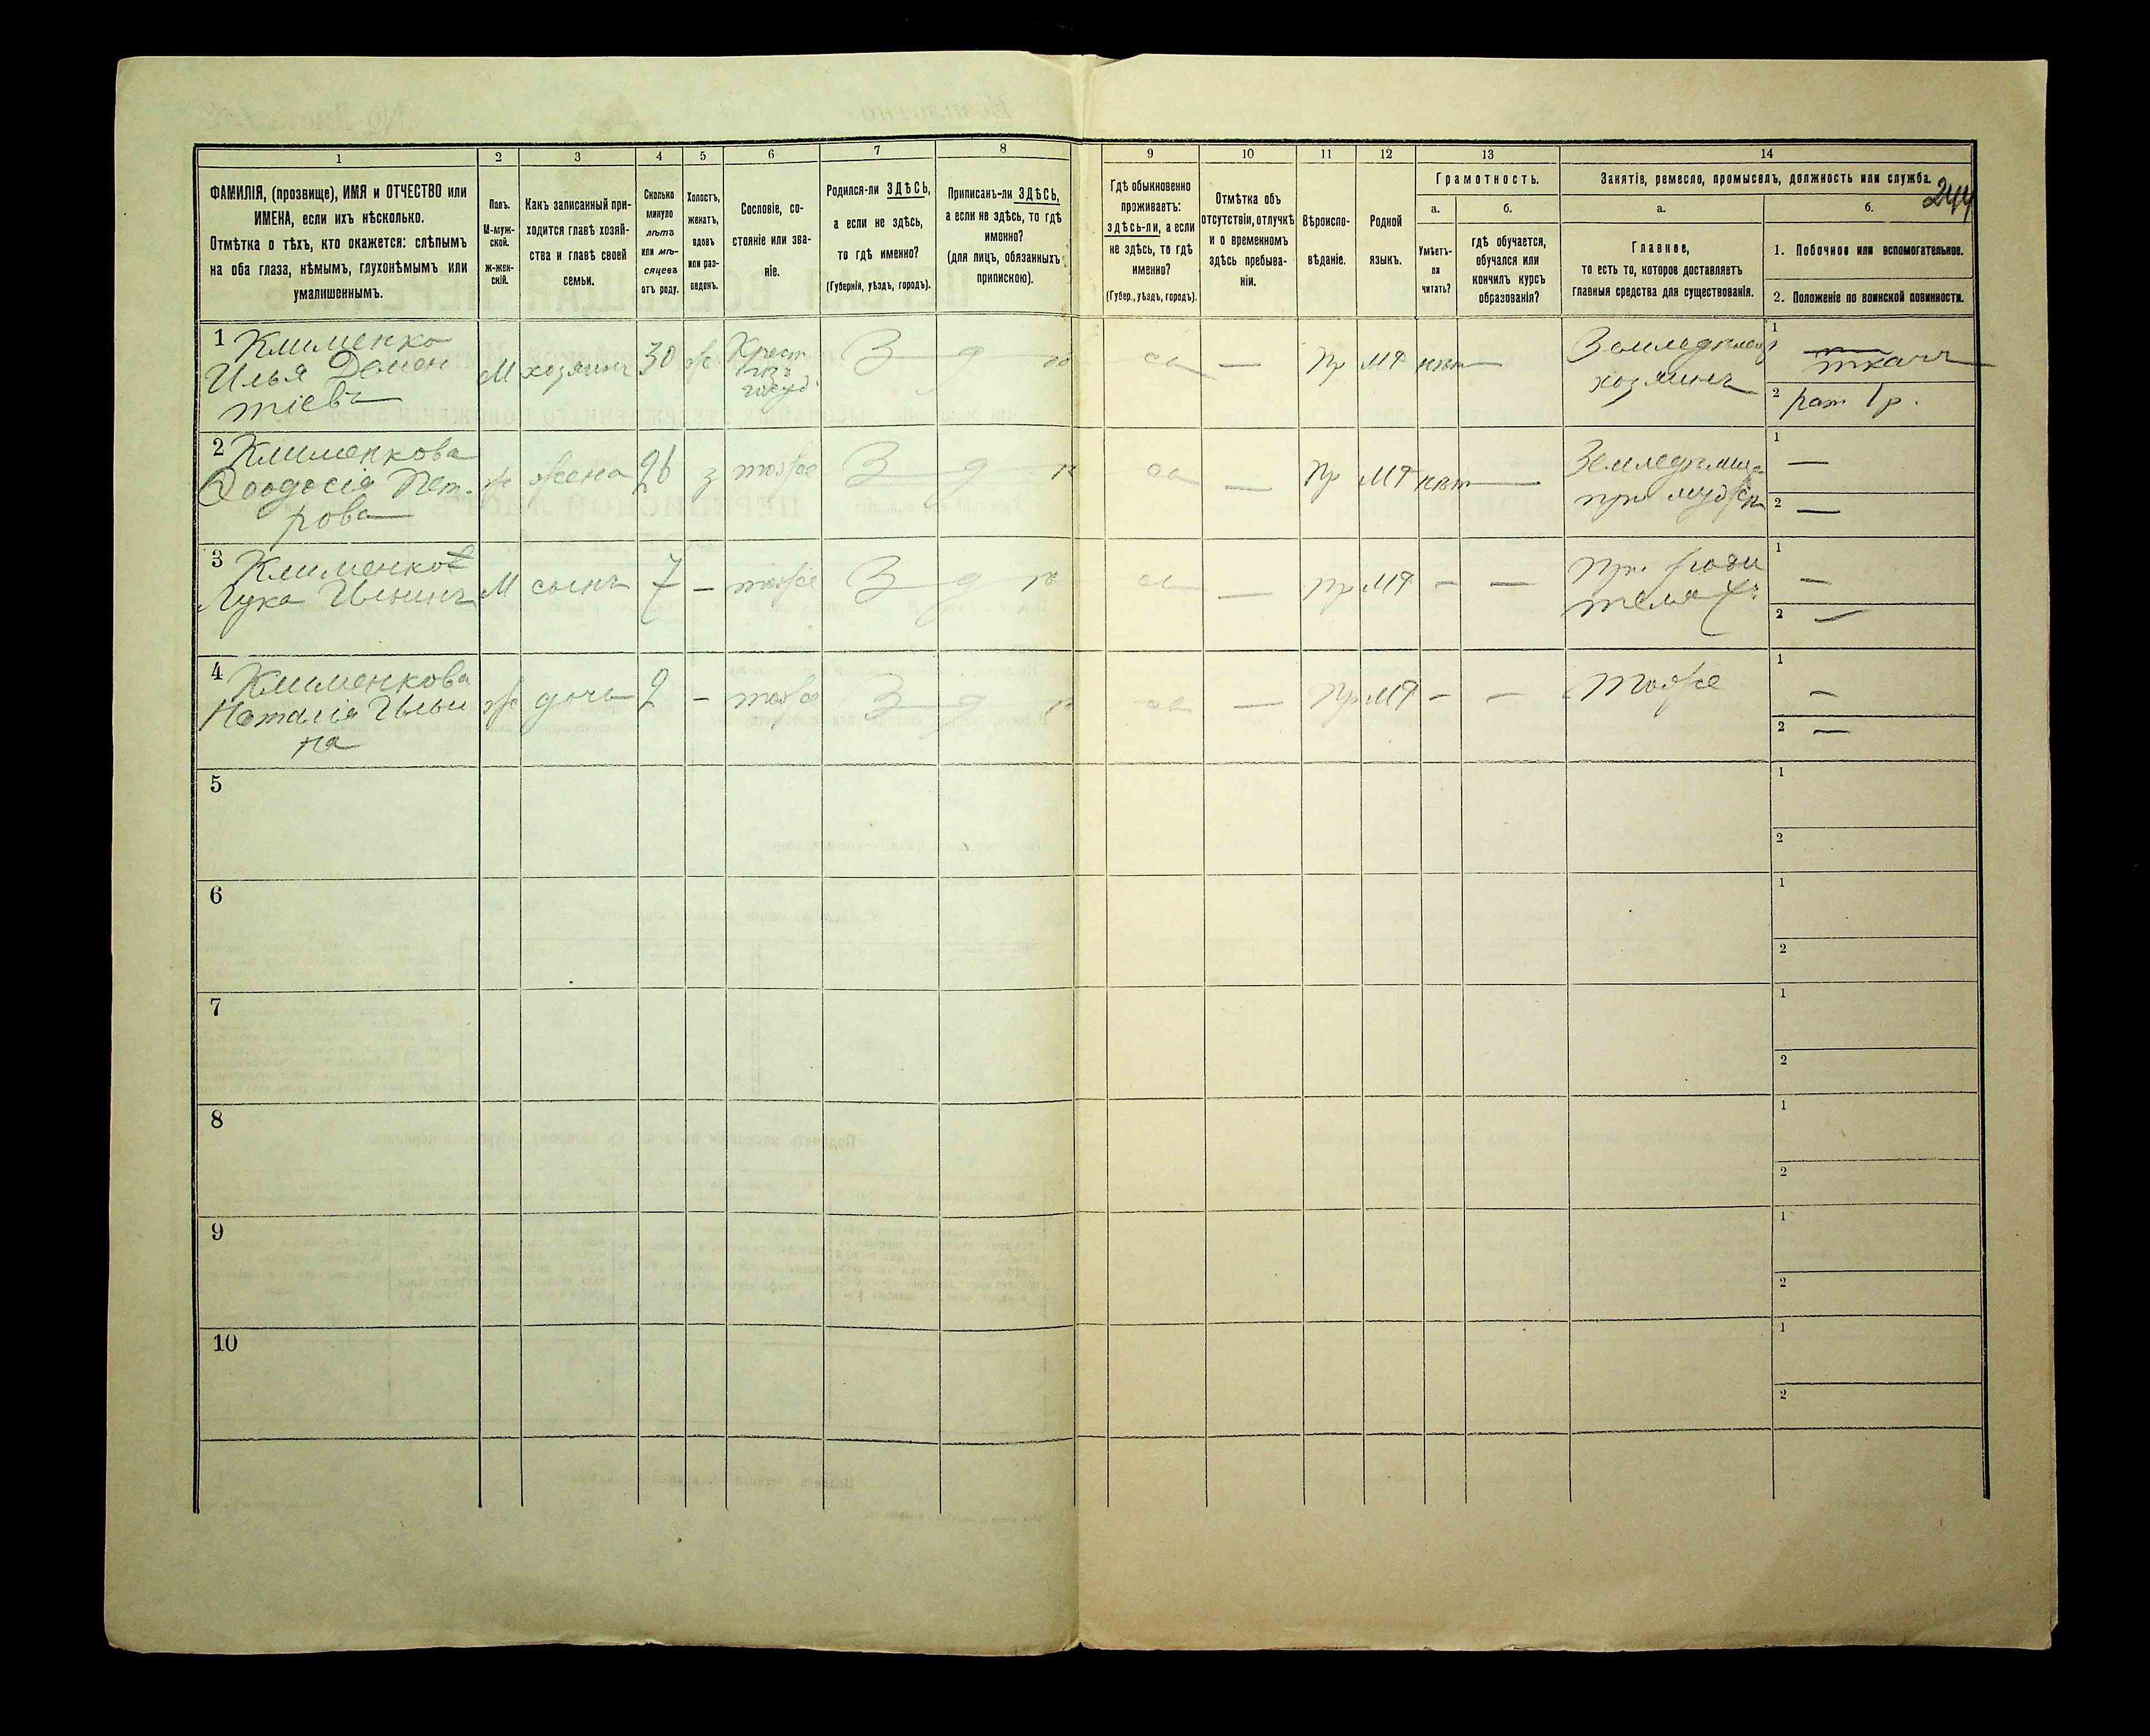 1 2 3 4 5 6 7 8 9 10 11 12 13 14
ФАМИЛІЯ, (прозвище), ИМЯ и ОТЧЕСТВО или
ИМЕНА, если ихъ нѣсколько.
Отмѣтка о тѣхъ, кто окажется: слѣпымъ
на оба глаза, нѣмымъ, глухонѣмымъ или
умалишеннымъ.
Полъ.
М-муж-
ской.
Ж-жен-
скій.
Какъ записанный при-
ходится главѣ хозяй-
ства и главѣ своей
семьи.
Сколько
минуло
лѣтъ
или мѣ-
сяцевъ
отъ роду.
Холостъ,
женатъ,
вдовъ
или раз-
веденъ.
Сословіе, со-
стояніе или зва-
ніе.
Родился-ли ЗДѢСЬ,
а если не здѣсь,
то гдѣ именно?
(Губернія, уѣздъ, городъ).
Приписанъ-ли ЗДѢСЬ,
а если не здѣсь, то гдѣ
именно?
(для лицъ, обязанныхъ
припискою).
Гдѣ обыкновенно
проживаетъ:
здѣсь-ли, а если
не здѣсь, то гдѣ
именно?
(Губер., уѣздъ, городъ).
Отмѣтка объ
отсутствіи, отлучкѣ
и о временномъ
здѣсь пребыва-
ніи.
Вѣроиспо-
вѣданіе.
Родной
языкъ.
Грамотность.
а.
Умѣетъ-
ли
читать?
б.
гдѣ обучается,
обучался или
кончилъ курсъ
образованія?
Занятіе, ремесло, промыселъ, должность или служба.
244
а.
Главное,
то есть то, которое доставляетъ
главныя средства для существованія.
б.
1. Побочное или вспомогательное.
2. Положеніе по воинской повинности.
1 Клименко
Илья Демен
тіевъ
М
хозяинъ
30
ж
Крест
изъ
госуд.
Пр
МР
нѣтъ
хозяинъ
1
ткачъ
2 рат 1 р.
2 Клименкова
Ѳеодосія Пет-
рова
ж
жена
26
з
тоже
Пр
МР
нѣтъ
при мужѣ
1 —
2 —
3 Клименко
Лука Ильинъ
М
сынъ
7
—
тоже
—
Пр
МР
—
—
При роди
теляхъ
1 —
2 —
4 Клименкова
Наталія Ильи
на
ж
дочь
2
—
тоже
—
Пр
МР
—
—
Тоже
1 —
2 —
5
1
2
6
1
2
7
1
2
8
1
2
9
1
2
10
1
2